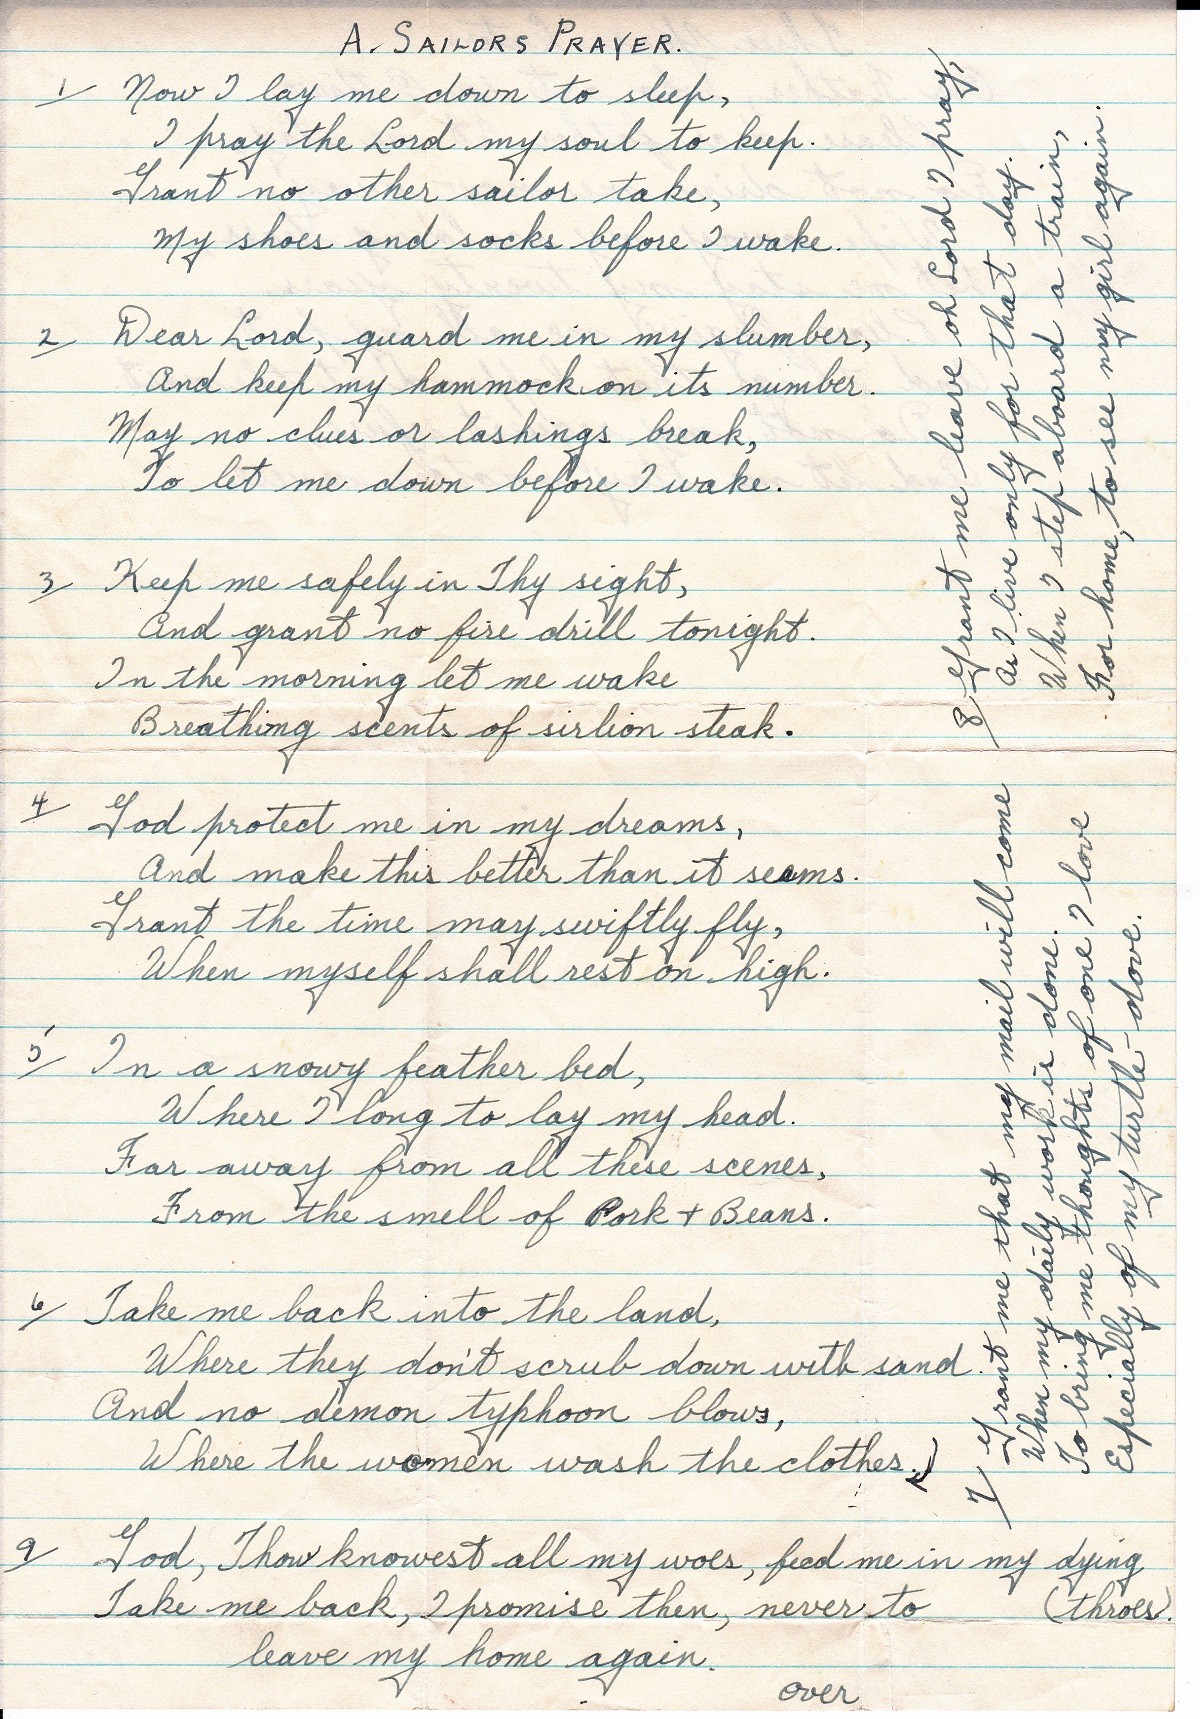 A. SAILORS PRAYER.
1/ Now I lay me down to sleep,
I pray the Lord my soul to keep.
Grant no other sailor take,
My shoes and socks before I wake.
2/ Dear Lord, guard me in my slumber,
And keep my hammock on its number.
May no clues or lashings break,
To let me down before I wake.
3/ Keep me safely in Thy sight,
And grant no fire drill tonight.
In the morning let me wake
Breathing scents of sirlion steak.
4/ God protect me in my dreams,
And make this better than it seams.
Grant the time may swiftly fly,
When myself shall rest on high.
5/ In a snowy feather bed,
Where I long to lay my head.
Far away from all these scenes,
From the smell of Pork + Beans.
6/ Take me back into the land,
Where they don't scrub down with sand.
And no demon typhoon blows,
Where the women wash the clothes.
7/ Grant me that my mail will come
When my daily work is done.
To bring me thoughts of one I love
Especially of my turtle-dove.
8/ Grant me leave oh Lord I pray,
As I live only for that day.
When I step aboard a train,
For home, to see my girl again.
9/ God, Thou knowest all my woes, feed me in my dying
(throes).
Take me back, I promise then, never to
leave my home again.
over